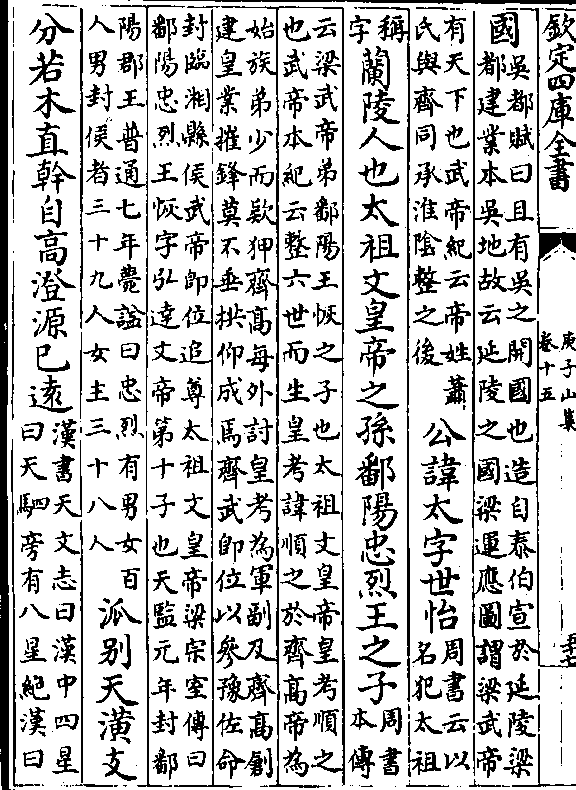 欽定四庫全書
庚子山集
卷十五
國
吳都賦曰且有吳之開國也造自泰伯宣於延陵梁
都建業本吳地故云延陵之國梁運應圖謂梁武帝
有天下也武帝紀云帝姓蕭
氏與齊同承淮陰整之後
公諱太字世怡
周書云以
名犯太祖
稱
字
蘭陵人也太祖文皇帝之孫鄱陽忠烈王之子
周書
本傳
云梁武帝弟鄱陽王恢之子也太祖文皇帝皇考順之
也武帝本紀云整六世而生皇考諱順之於齊高帝為
始族弟少而欵狎齊高每外討皇考為軍副及齊高創
建皇業摧鋒莫不垂拱仰成焉齊武即位以參豫佐命
封臨湘縣侯武帝即位追尊太祖文皇帝梁宗室傳曰
鄱陽忠烈王恢字弘達文帝第十子也天監元年封鄱
陽郡王普通七年薨諡曰忠烈有男女百
人男封侯者三十九人女主三十八人
派别天潢支
分若木直幹自高澄源已遠
漢書天文志曰漢中四星
曰天駟旁有八星絶漢曰